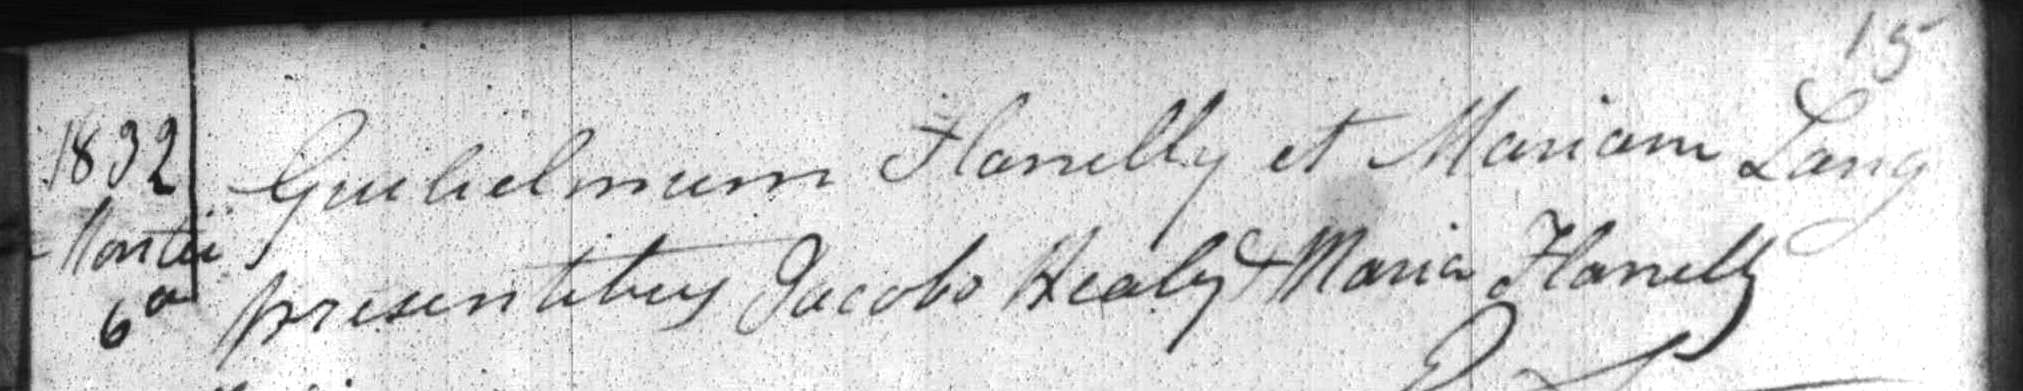 15
1832 Gulielmum Flanelly et Mariam Lang
Martii presentibus Jacobo Healy & Maria Flanelly
6a